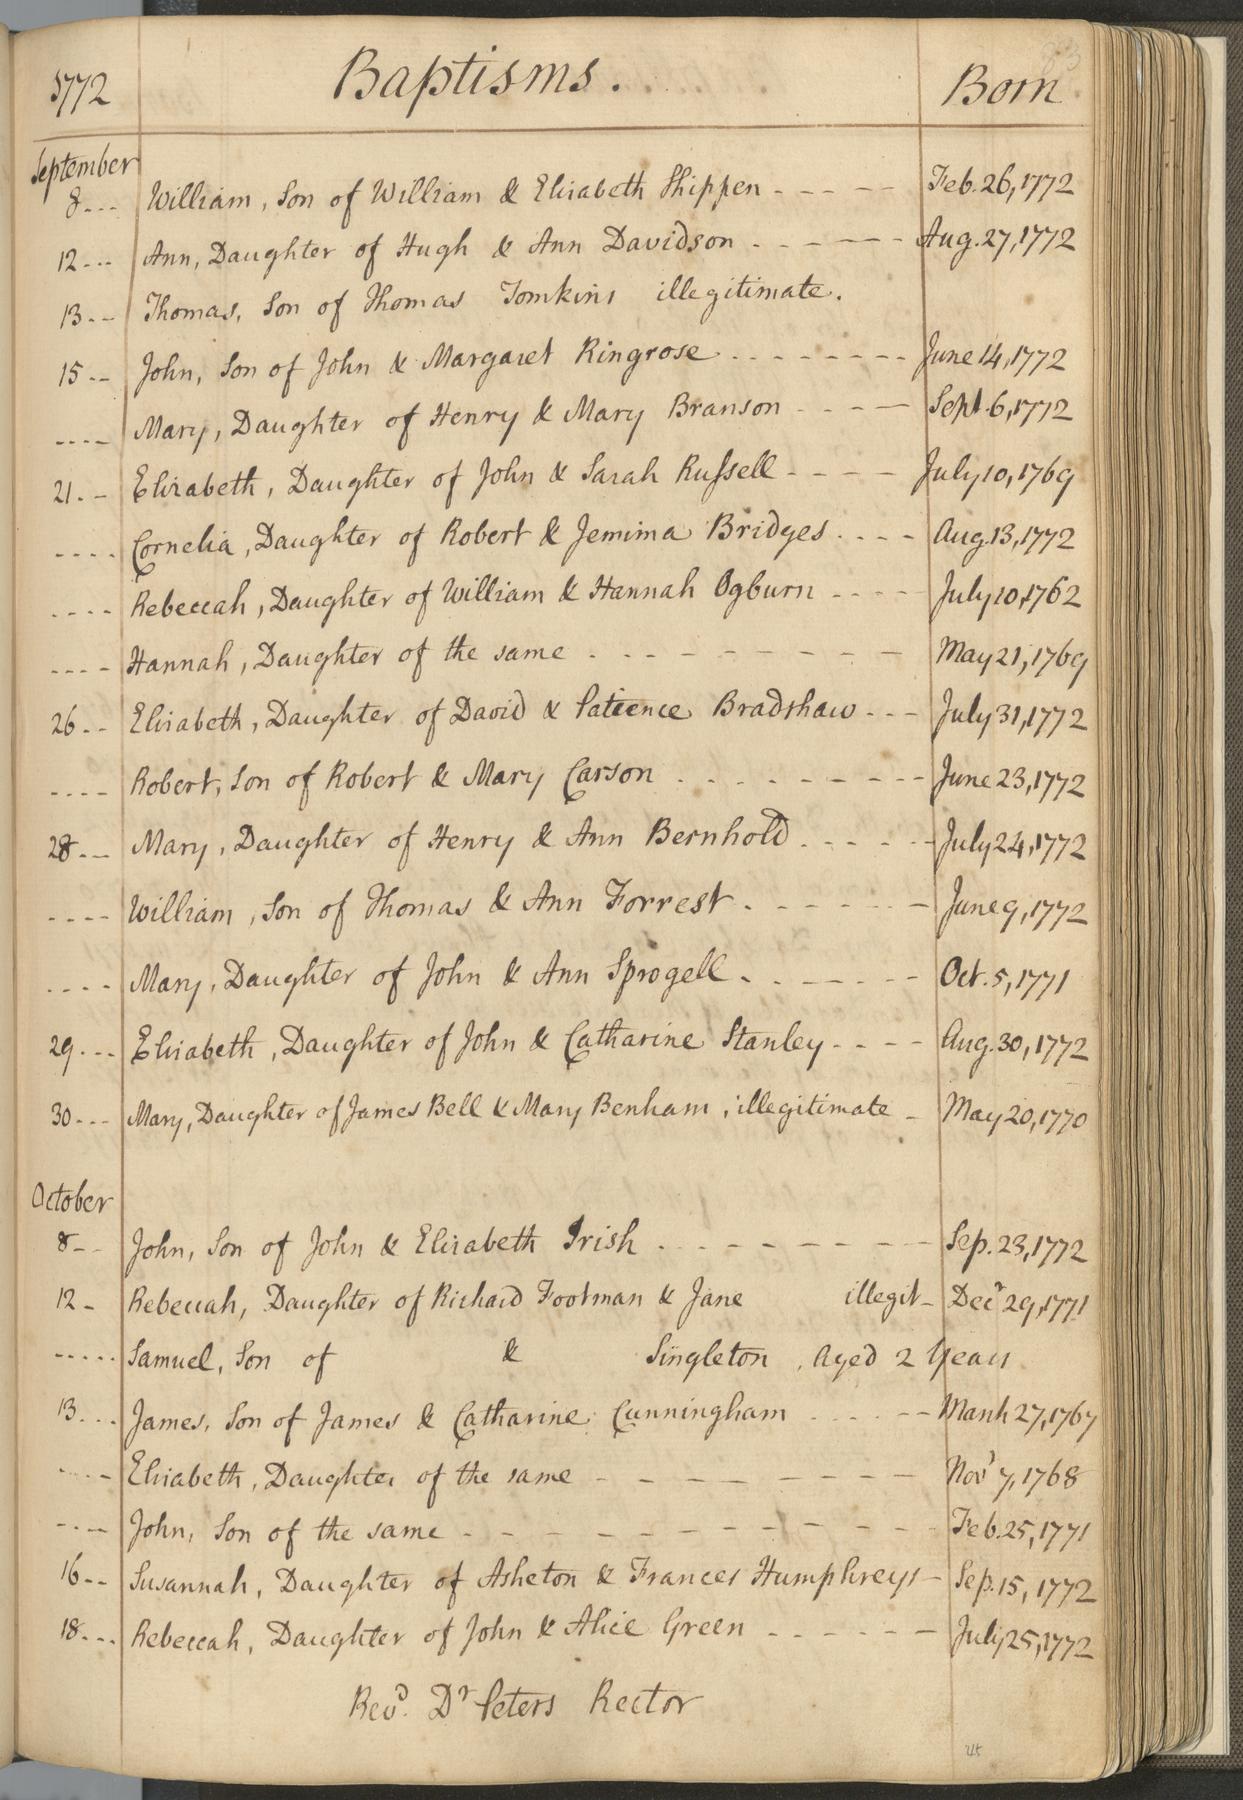 83
1772 Baptisms. Born
September
8--- William, Son of William & Elisabeth Shippen ----- Feb. 26, 1772
12--- Ann, Daughter of Hugh & Ann Davidson ------ Aug. 27, 1772
13-- Thomas, Son of Thomas Tomkins illegitimate.
15-- John, Son of John & Margaret Ringrose -------- June 14, 1772
---- Mary, Daughter of Henry & Mary Branson ---- Sept. 6, 1772
21.- Elisabeth, Daughter of John & Sarah Russell ---- July 10, 1769
---- Cornelia, Daughter of Robert & Jemima Bridges ---- Aug. 13, 1772
---- Rebeccah, Daughter of William & Hannah Ogburn ---- July 10, 1762
---- Hannah, Daughter of the same --------- May 21, 1769
26-- Elisabeth, Daughter of David & Patience Bradshaw --- July 31, 1772
---- Robert, Son of Robert & Mary Carson --------- June 23, 1772
28--- Mary, Daughter of Henry & Ann Bernhold ------ July 24, 1772
---- William, Son of Thomas & Ann Forrest ------- June 9, 1772
---- Mary, Daughter of John & Ann Sprogell ------ Oct. 5, 1771
29--- Elisabeth, Daughter of John & Catharine Stanley ---- Aug. 30, 1772
30--- Mary, Daughter of James Bell & Mary Benham, illegitimate - May 20, 1770
October
8-- John, Son of John & Elisabeth Irish --------- Sep. 23, 1772
12- Rebeccah, Daughter of Richard Footman & Jane illegit- Decr 29, 1771
----- Samuel, Son of & Singleton, Aged 2 Years
13--- James, Son of James & Catharine Cunningham ------ March 27, 1767
---- Elisabeth, Daughter of the same -------- Novr 7, 1768
---- John, Son of the same ----------- Feb. 25, 1771
16-- Susannah, Daughter of Asheton & Frances Humphreys - Sep. 15, 1772
18--- Rebeccah, Daughter of John & Alice Green ------ July 25, 1772
Revd. Dr Peters Rector
45